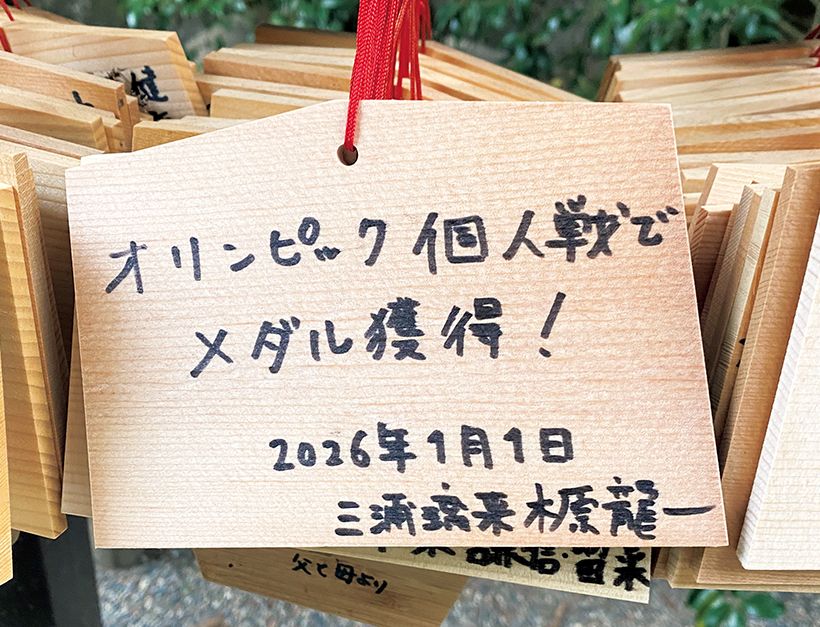 オリンピック個人戦で
メダル獲得!
2026年1月1日
三浦璃来木原龍一
父と母より